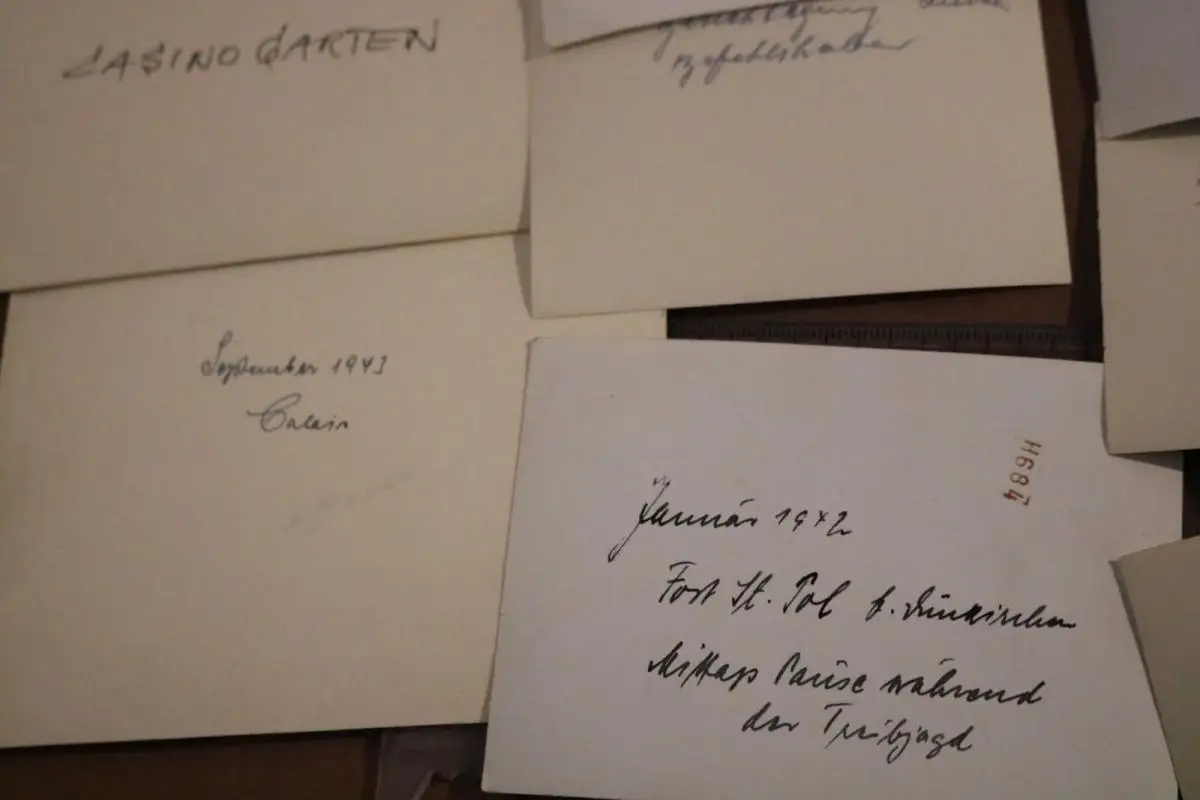 CASINO GARTEN
Befehlshaber
September 1943
Calais
H684
Januar 1942
Fort St. Pol b. Dünkirchen
Mittags Pause während
der Treibjagd